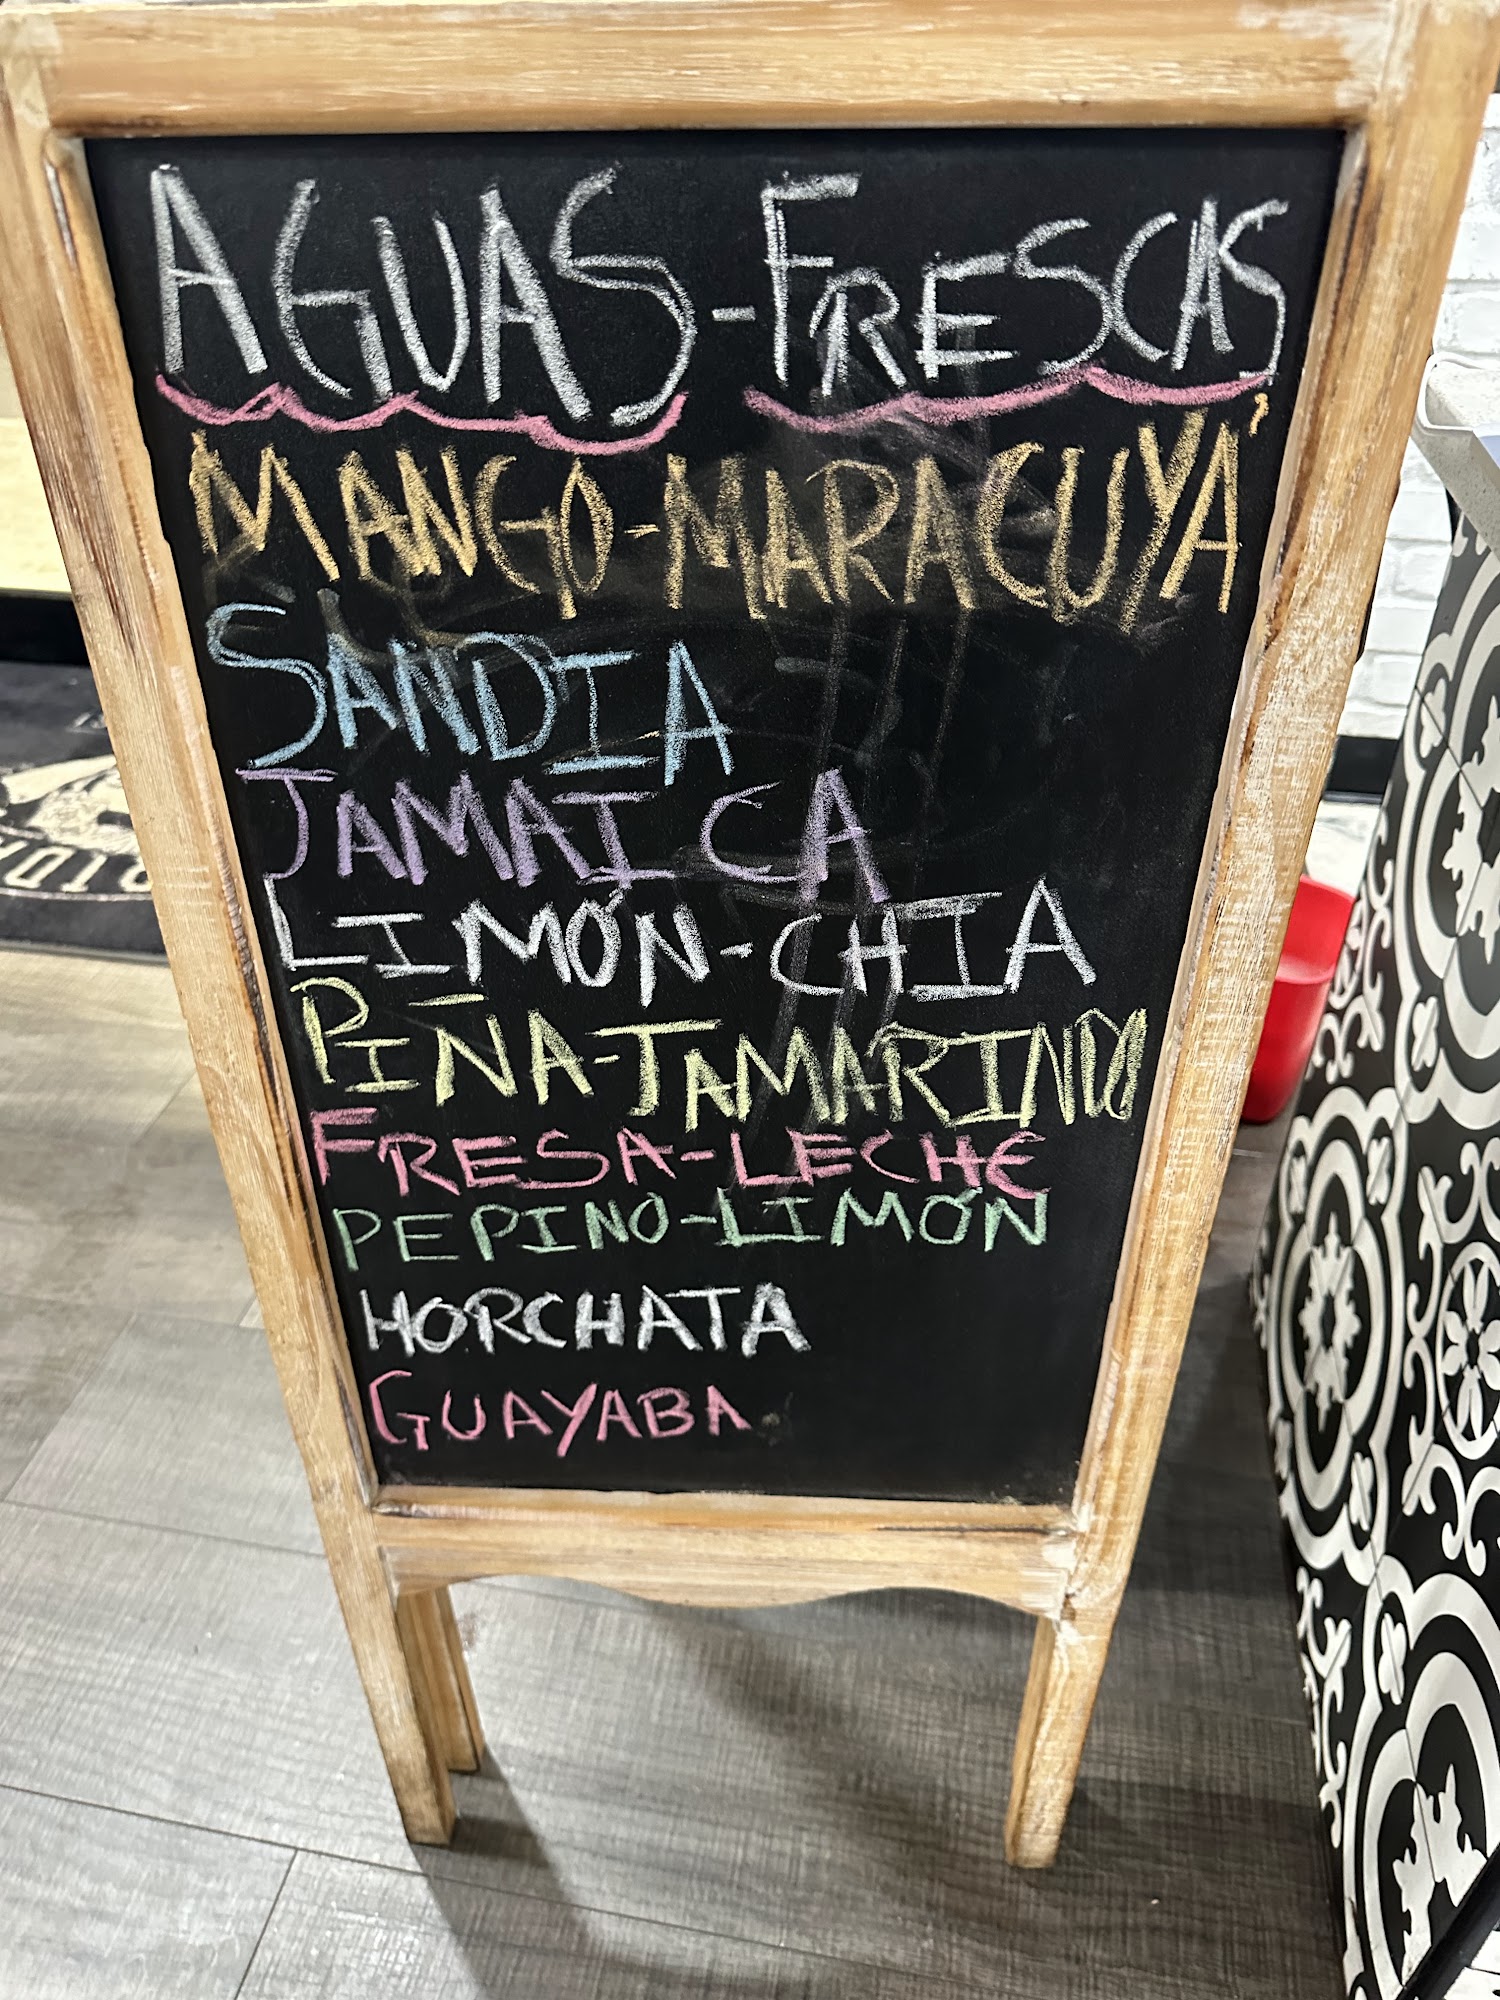 AGUAS-FRESCAS
MANGO-MARACUYÁ
SANDIA
JAMAICA
LIMÓN-CHIA
PIÑA-TAMARINDO
FRESA-LECHE
PEPINO-LIMÓN
HORCHATA
GUAYABA